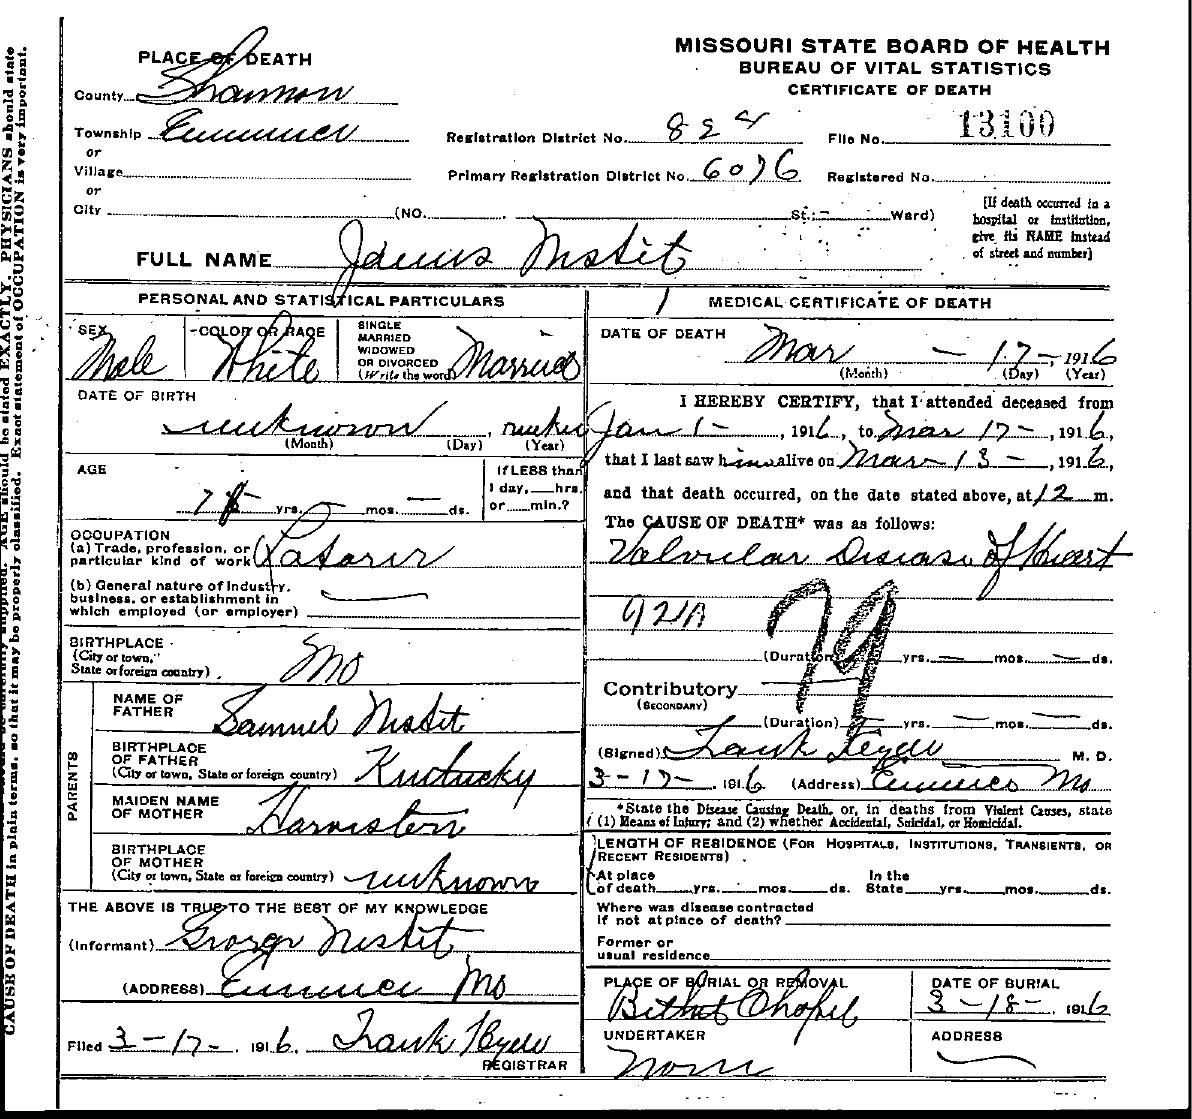 MISSOURI STATE BOARD OF HEALTH
BUREAU OF VITAL STATISTICS
CERTIFICATE OF DEATH
PLACE OF DEATH
County Shannon
Township
or
Village
or
City (NO. St.; Ward)
Registration District No. 824
File No. 13100
Primary Registration District No. 6076
Registered No.
[If death occurred in a
hospital or institution,
give its NAME instead
of street and number]
FULL NAME James
PERSONAL AND STATISTICAL PARTICULARS
SEX
Male
COLOR OR RACE
White
SINGLE
MARRIED
WIDOWED
OR DIVORCED
(Write the word)
Married
DATE OF BIRTH
unknown
(Month) (Day) (Year)
AGE
yrs. mos. ds.
If LESS than
1 day, hrs.
or min.?
OCCUPATION
(a) Trade, profession, or
particular kind of work
(b) General nature of Industry,
business, or establishment in
which employed (or employer)
BIRTHPLACE
(City or town,
State or foreign country)
Mo
PARENTS
NAME OF
FATHER
Samuel
BIRTHPLACE
OF FATHER
(City or town, State or foreign country)
Kentucky
MAIDEN NAME
OF MOTHER
BIRTHPLACE
OF MOTHER
(City or town, State or foreign country)
unknown
THE ABOVE IS TRUE TO THE BEST OF MY KNOWLEDGE
(Informant) George
(ADDRESS) Mo
Filed 3-17-, 1916. Frank Hyde
REGISTRAR
MEDICAL CERTIFICATE OF DEATH
DATE OF DEATH
Mar - 17-, 1916
(Month) (Day) (Year)
I HEREBY CERTIFY, that I attended deceased from
Jan 1-, 1916, to Mar 17-, 1916,
that I last saw him alive on Mar 13-, 1916,
and that death occurred, on the date stated above, at 12 m.
The CAUSE OF DEATH* was as follows:
Valvular Disease of Heart
92A
79
(Duration) yrs. - mos. - ds.
Contributory
(SECONDARY)
(Duration) yrs. - mos. - ds.
(Signed) Frank Hyde M. D.
3-17-, 1916 (Address) Mo
*State the Disease Causing Death, or, in deaths from Violent Causes, state
(1) Means of Injury; and (2) whether Accidental, Suicidal, or Homicidal.
LENGTH OF RESIDENCE (FOR HOSPITALS, INSTITUTIONS, TRANSIENTS, OR
RECENT RESIDENTS)
At place
of death yrs. mos. ds.
In the
State yrs. mos. ds.
Where was disease contracted
if not at place of death?
Former or
usual residence
PLACE OF BURIAL OR REMOVAL
Chapel
DATE OF BURIAL
3-18-, 1916
UNDERTAKER
None
ADDRESS
AGE should be stated EXACTLY. PHYSICIANS should state
CAUSE OF DEATH in plain terms, so that it may be properly classified. Exact statement of OCCUPATION is very important.